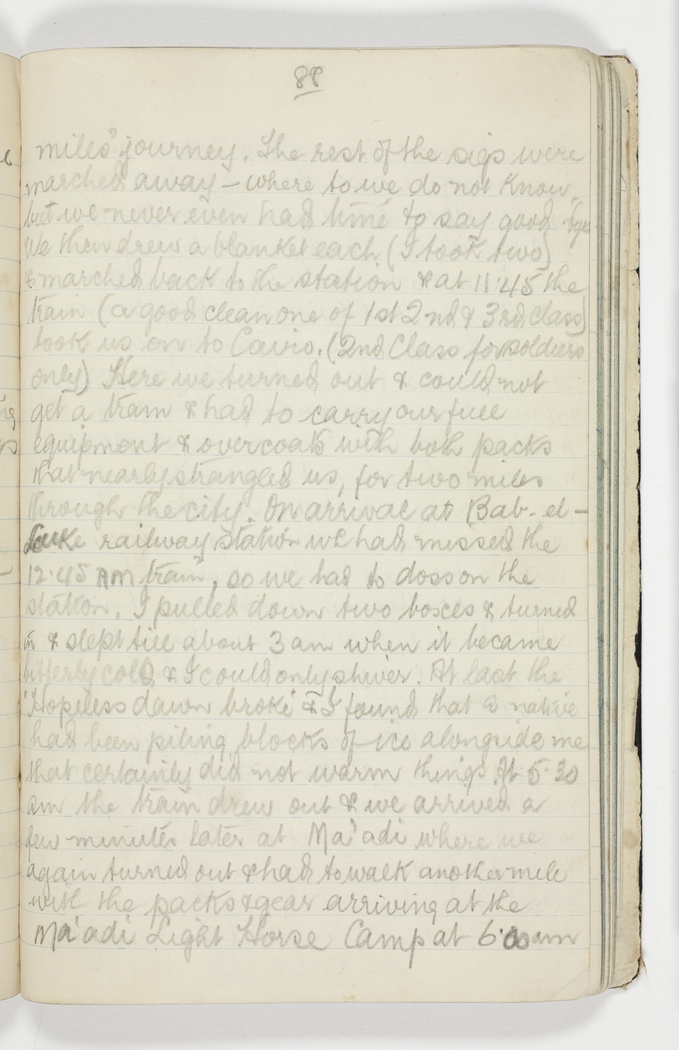 88
miles' journey. The rest of the sigs were
marched away – where to we do not know
but we never even had time to say good bye
We then drew a blanket each (I took two)
& marched back to the station & at 11.45 the
train (a good clean one of 1st 2nd & 3rd class)
took us on to Cairo. (2nd Class for soldiers
only) Here we turned out & could not
get a tram & had to carry our full
equipment & overcoats with both packs
that nearly strangled us, for two miles
through the city. On arrival at Bab-el-
Luke railway station we had missed the
12.45 AM train, so we had to doss on the
station. I pulled down two boxes & turned
in & slept till about 3 am when it became
bitterly cold & I could only shiver. At last the
"Hopeless dawn broke" & I found that a native
had been piling blocks of ice alongside me
that certainly did not warm things. At 5.30
am the train drew out & we arrived a
few minutes later at Ma'adi where we
again turned out & had to walk another mile
with the packs & gear arriving at the
Ma'adi Light Horse Camp at 6.00 am